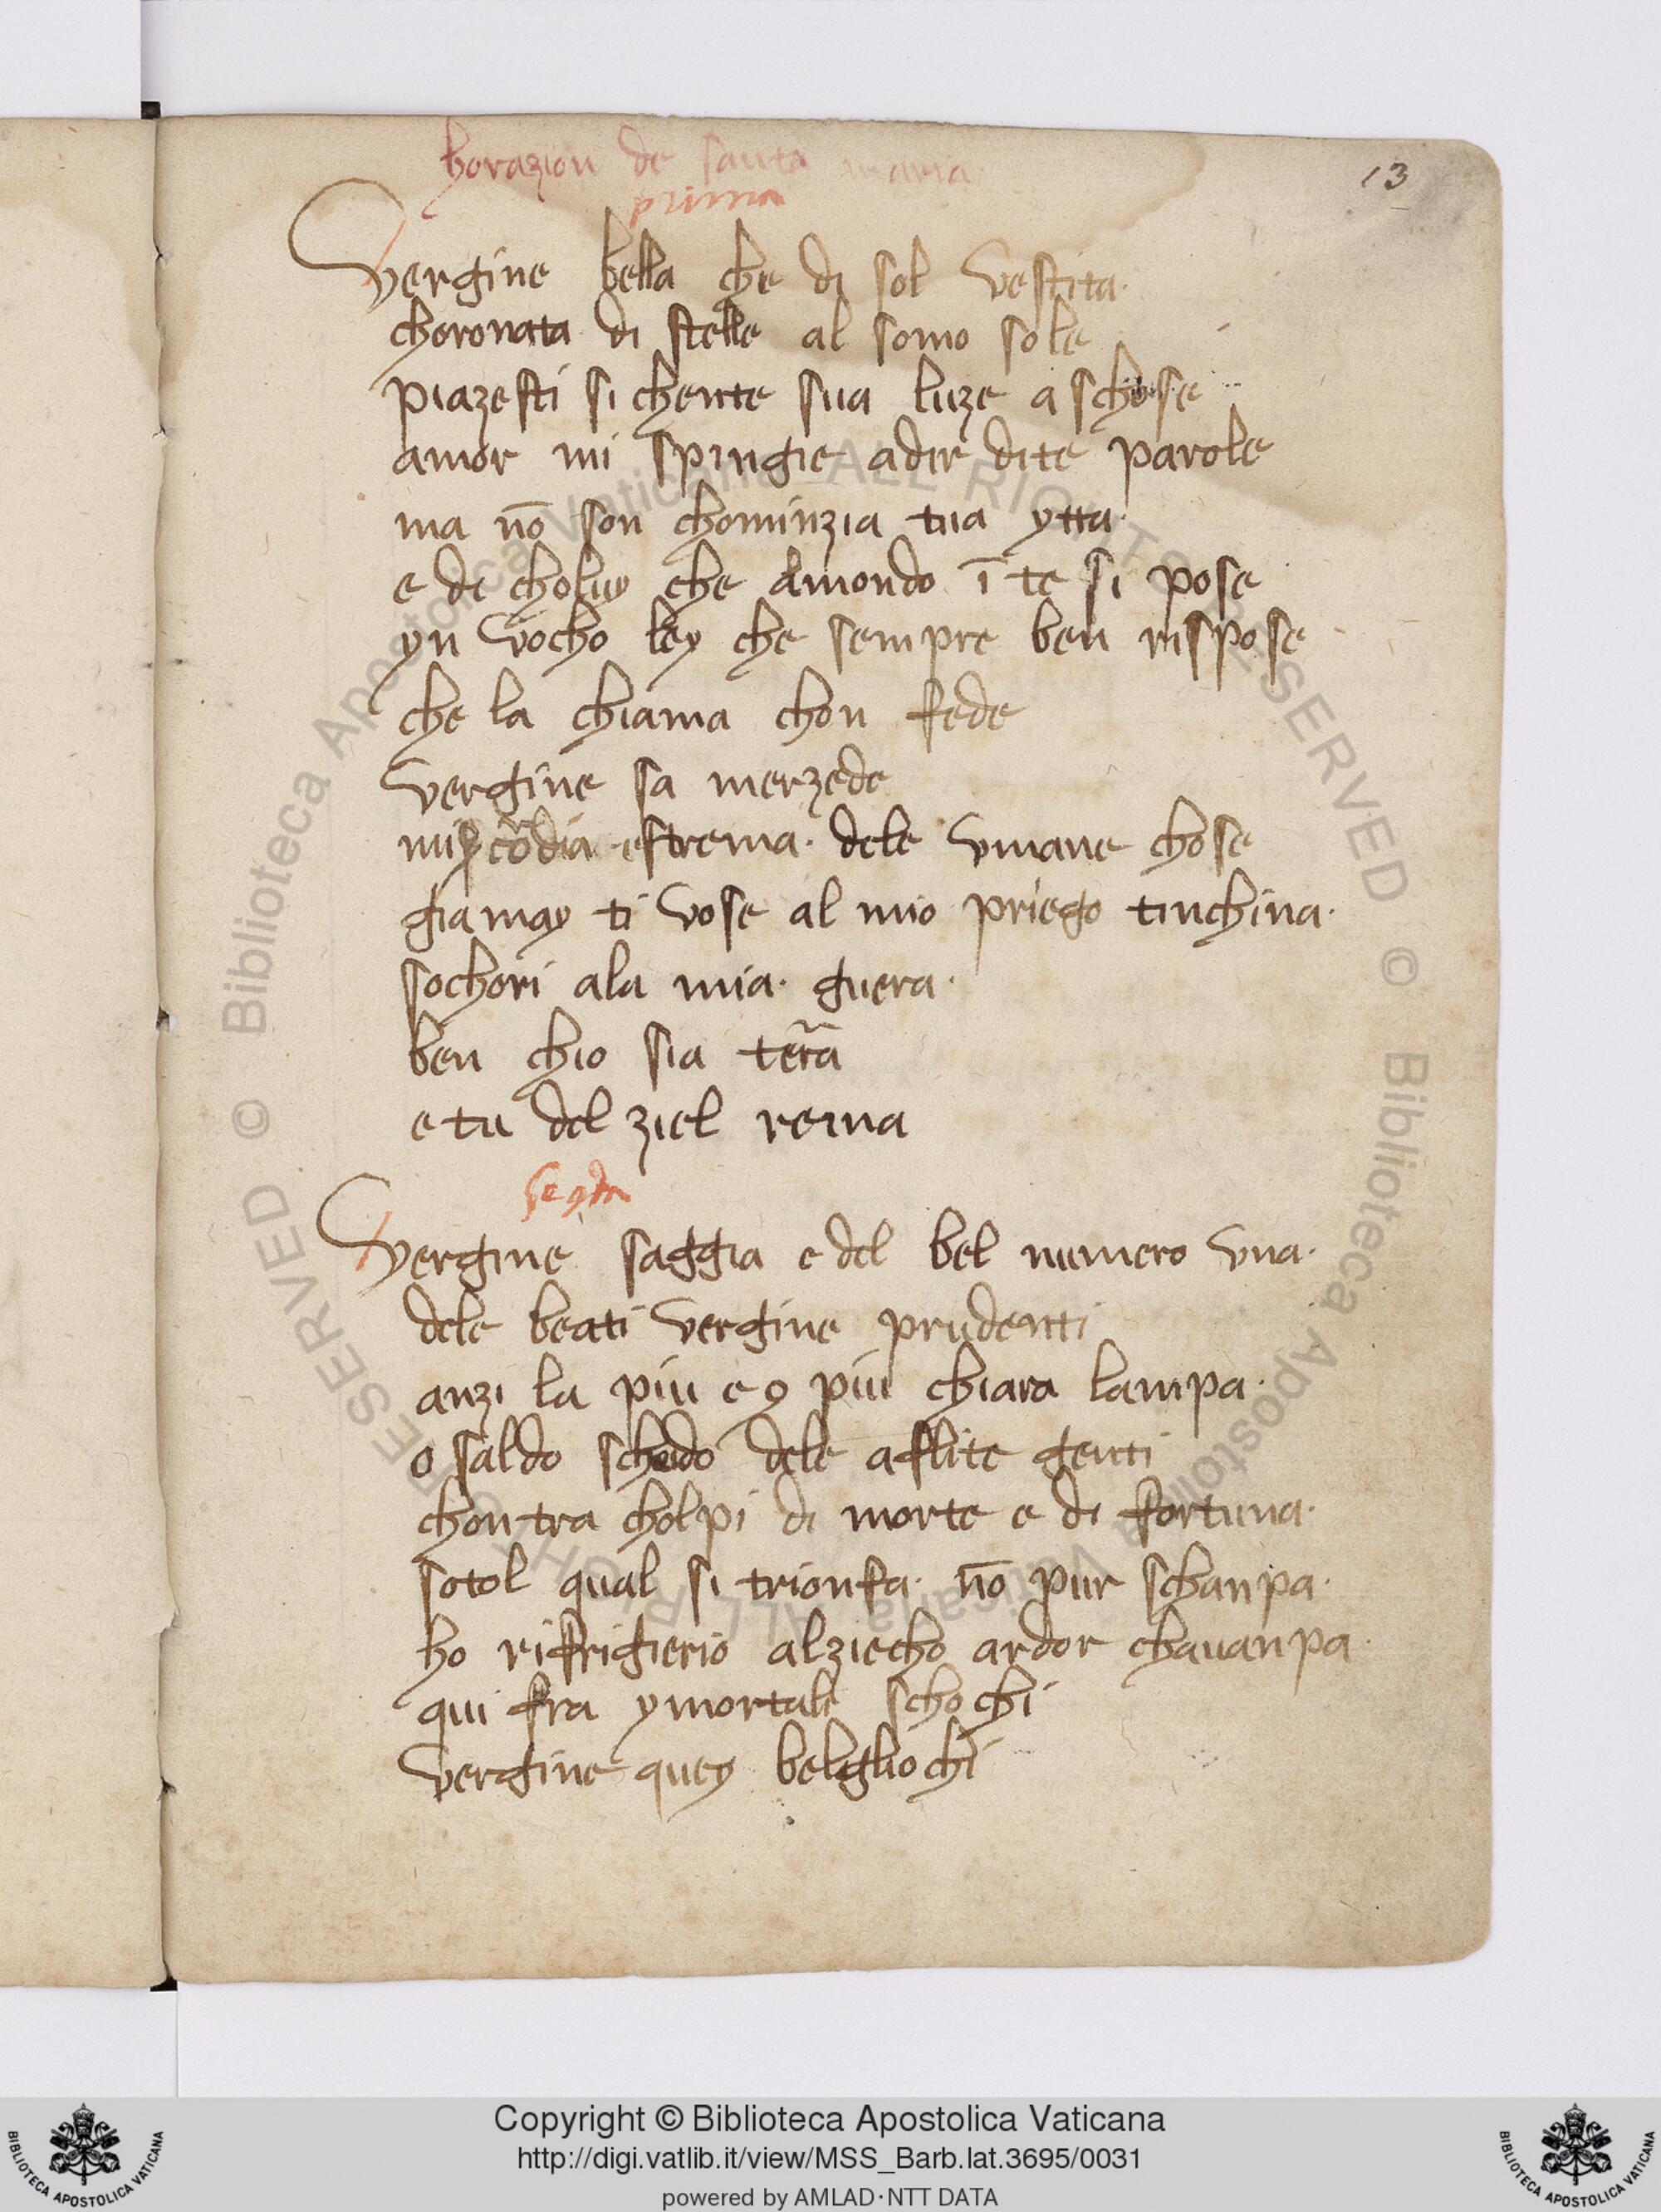 horazion de santa maria
prima
13
Vergine bella che di sol vestita·
choronata di stelle al somo sole
piazesti si chente sua luze aschose
amor mi spingie adir dite parole
ma nō son chominzia tua ytta·
e de choluy che Amondo ī te si pose
yn vocho ley che sempre ben rispose
che la chiama chon fede
vergine sa merzede
estrema· dele vmane chose
giamay ti vose al mio priego tinchina·
sochori ala mia· guera·
ben chio sia tera
e tu del ziel reina
segda
Vergine saggia e del bel numero vna·
dele beati vergine prudenti
anzi la piu e 9 piu chiara lampa·
o saldo schudo dele aflite genti
chontra cholpi di morte e di fortuna·
sotol qual si trionfa· nō pur schanpa·
ho rifrigierio alziecho ardor chavanpa·
qui fra ymortali schochi
vergine quey belgliochi
© Biblioteca Apostolica Vaticana ALL RIGHTS RESERVED © Biblioteca Apostolica Vaticana ALL RIGHTS RESERVED
BIBLIOTECA APOSTOLICA VATICANA
Copyright © Biblioteca Apostolica Vaticana
http://digi.vatlib.it/view/MSS_Barb.lat.3695/0031
powered by AMLAD·NTT DATA
BIBLIOTECA APOSTOLICA VATICANA